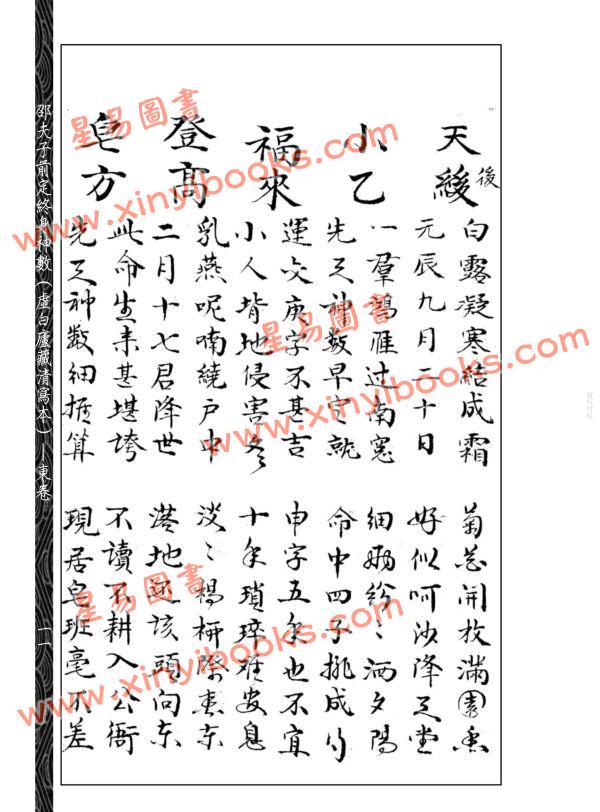 天綬
後
白露凝寒結成霜 菊花開放滿園香
元辰九月二十日 好似呵沙降堂
小乙
一羣鴻雁过南窓 細柳紛〻洒夕陽
先天神数早定就 命中四子排成行
福來
運交庚字不甚吉 申字五年也不宜
小人背地侵害多 十年瑣碎难安息
登高
乳燕呢喃繞户中 淡〻楊柳際春东
二月十七君降世 落地該頭向东
皂方
此命生来甚堪垮 不讀不耕入公衙
先天神数細推算 現居皂班毫不差
邵夫子前定終身神數（虛白廬藏清寫本）—東卷
一一
星易圖書
www.xinyibooks.com
星易圖書
www.xinyibooks.com
星易圖書
www.xinyibooks.com